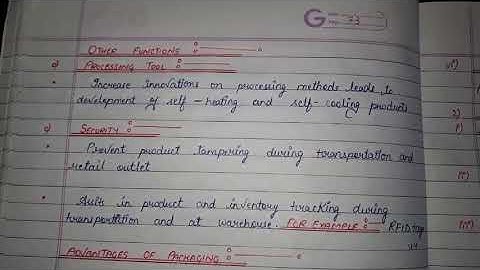 G
OTHER FUNCTIONS :-
d) PROCESSING TOOL :-
• Increase innovations on processing methods leads to
development of self-heating and self-cooling products
e) SECURITY :-
• Prevent product tampering during transportation and
retail outlet
• Aids in product and inventory tracking during
transportation and at warehouse. FOR EXAMPLE :- RFID tag
ADVANTAGES OF PACKAGING :-
2)